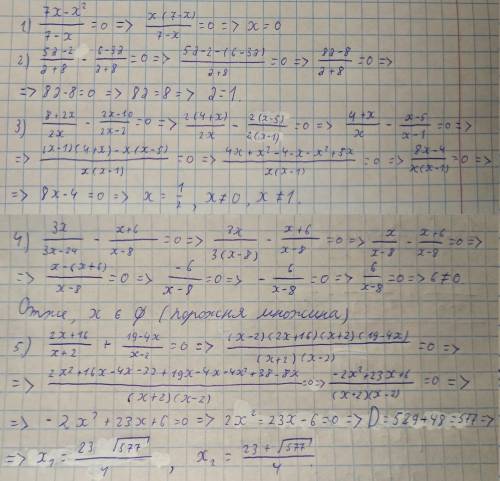 1) (7x-x²)/(7-x) =0 => x(7-x)/(7-x) =0 => x=0
2) (5a-2)/(a+8) - (6-3a)/(a+8) =0 => (5a-2-(6-3a))/(a+8) =0 => (8a-8)/(a+8) =0 =>
=> 8a-8=0 => 8a=8 => a=1.
3) (8+2x)/2x - (2x-10)/(2x-2) =0 => 2(4+x)/2x - 2(x-5)/2(x-1) =0 => (4+x)/x - (x-5)/(x-1) =0 =>
=> ((x-1)(4+x)-x(x-5))/(x(x-1)) =0 => (4x+x²-4-x-x²+5x)/(x(x-1)) =0 => (8x-4)/(x(x-1)) =0 =>
=> 8x-4 =0 => x = 1/2, x≠0, x≠1.
4) 3x/(3x-24) - (x+6)/(x-8) =0 => 3x/3(x-8) - (x+6)/(x-8) =0 => x/(x-8) - (x+6)/(x-8) =0 =>
=> (x-(x+6))/(x-8) =0 => -6/(x-8) =0 => - 6/(x-8) =0 => 6/(x-8) =0 => 6≠0.
Отже, x ∈ ϕ (порожня множина)
5) (2x+16)/(x+2) + (19-4x)/(x-2) =0 => (x-2)(2x+16)(x+2)(19-4x)/((x+2)(x-2)) =0 =>
=> (2x²+16x-4x-32+19x-4x-4x²+38-8x)/((x+2)(x-2)) =0 => (-2x²+23x+6)/((x+2)(x-2)) =0 =>
=> -2x²+23x+6=0 => 2x²=23x-6=0 => D=529+48=577 =>
=> x₁ = (23 √577)/4, x₂ = (23+√577)/4.